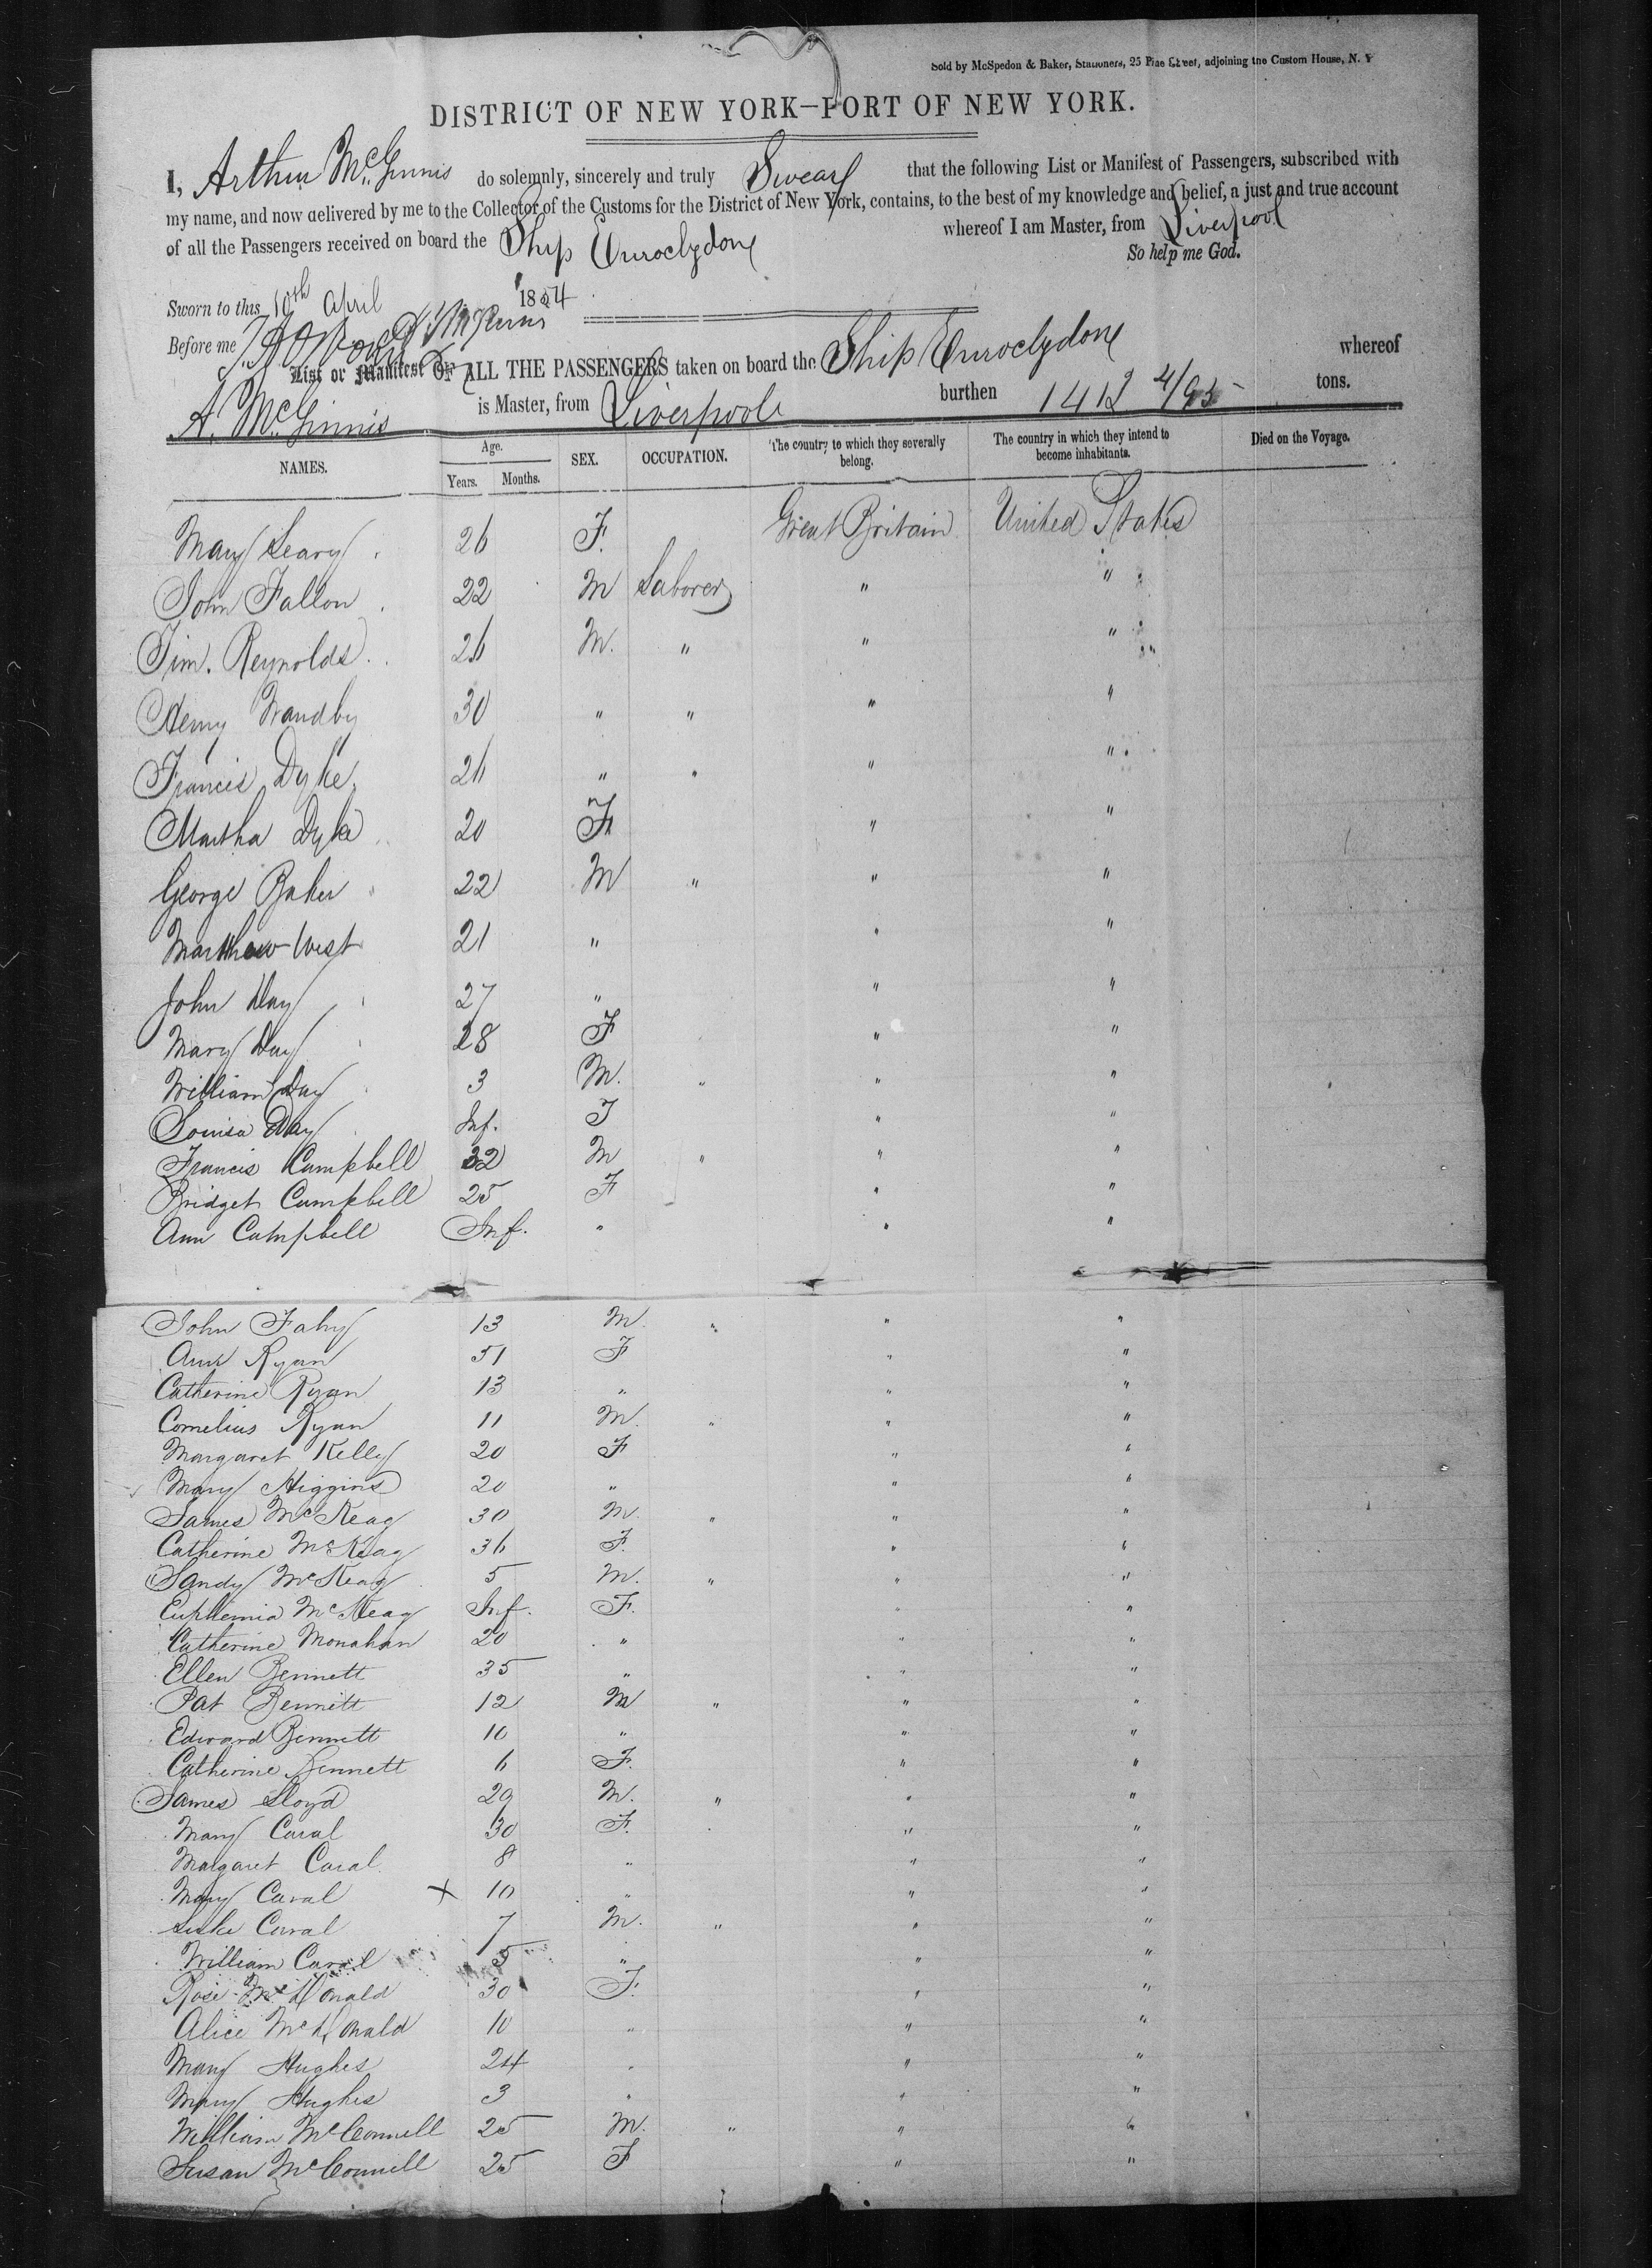 Sold by McSpedon & Baker, Stationers, 25 Pine Street, adjoining the Custom House, N. Y
DISTRICT OF NEW YORK—PORT OF NEW YORK.
I, Arthur McGinnis do solemnly, sincerely and truly Swear that the following List or Manifest of Passengers, subscribed with
my name, and now delivered by me to the Collector of the Customs for the District of New York, contains, to the best of my knowledge and belief, a just and true account
of all the Passengers received on board the Ship Euroclydone whereof I am Master, from Liverpool
So help me God.
Sworn to this 10th April 1854
Before me
List or Manifest OF ALL THE PASSENGERS taken on board the Ship Euroclydone whereof
A. McGinnis is Master, from Liverpoole burthen 1412 4/95 tons.
NAMES. Age. Years. Months. SEX. OCCUPATION. The country to which they severally belong. The country in which they intend to become inhabitants. Died on the Voyage.
Mary Leary 26 F. Great Britain United States
John Fallon 22 M Laborer " "
Jim. Reynolds 26 M. " " "
Henry Wandby 30 " " " "
Francis Dyke 26 " " " "
Martha Dyke 20 F " "
George Baker 22 M " " "
Matthew West 21 " " "
John Day 27 " " "
Mary Day 28 F " "
William Day 3 M. " " "
Louisa Day Inf. F " "
Francis Campbell 32 M " " "
Bridget Campbell 25 F " "
Ann Campbell Inf. " " "
John Fahy 13 M. " " "
Ann Ryan 51 F " "
Catherine Ryan 13 " " "
Cornelius Ryan 11 M. " " "
Margaret Kelly 20 F " "
Mary Higgins 20 " " "
James McKeag 30 M. " " "
Catherine McKeag 36 F. " "
Sandy McKeag 5 M. " " "
Euphemia McKeag Inf. F. " "
Catherine Monahan 20 " " "
Ellen Bennett 35 " " "
Pat Bennett 12 M " " "
Edward Bennett 10 " " "
Catherine Bennett 6 F. " "
James Lloyd 29 M. " " "
Mary Caral 30 F. " "
Margaret Caral 8 " " "
Mary Caral x 10 " " "
Luke Caral 7 M. " " "
William Caral 5 " " "
Rose McDonald 30 F. " "
Alice McDonald 10 " " "
Mary Hughes 24 " " "
Mary Hughes 3 " " "
William McConnell 25 M. " " "
Susan McConnell 25 F " "